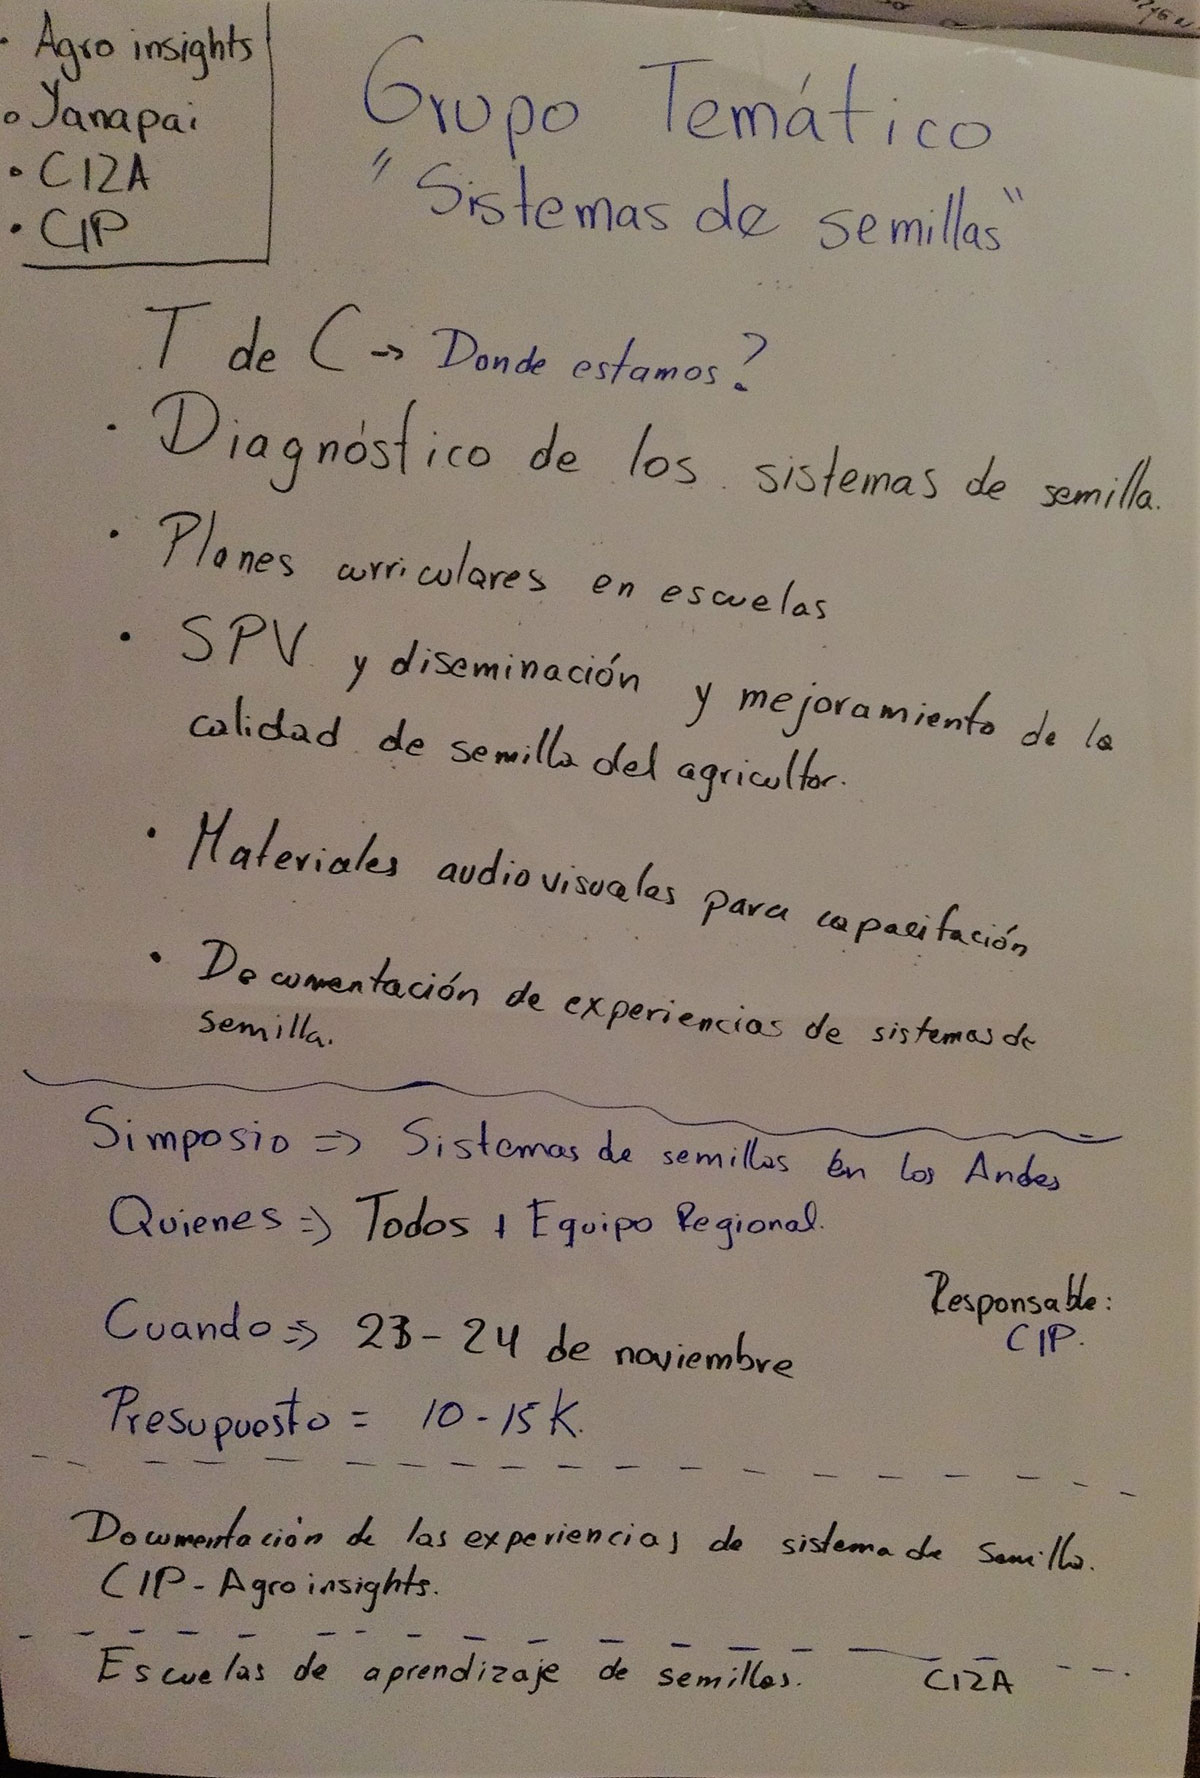 • Agro insights
• Yanapai
• CIZA
• CIP
Grupo Temático
"Sistemas de semillas"
T de C → Donde estamos?
• Diagnóstico de los sistemas de semilla.
• Planes curriculares en escuelas
• SPV y diseminación y mejoramiento de la
calidad de semilla del agricultor.
• Materiales audiovisuales para capacitación
• Documentación de experiencias de sistemas de
semilla.
Simposio => Sistemas de semillas en los Andes
Quienes => Todos + Equipo Regional.
Cuando => 23-24 de noviembre
Responsable:
CIP.
Presupuesto = 10-15K.
Documentación de las experiencias de sistema de semilla.
CIP-Agro insights.
Escuelas de aprendizaje de semillas. CIZA